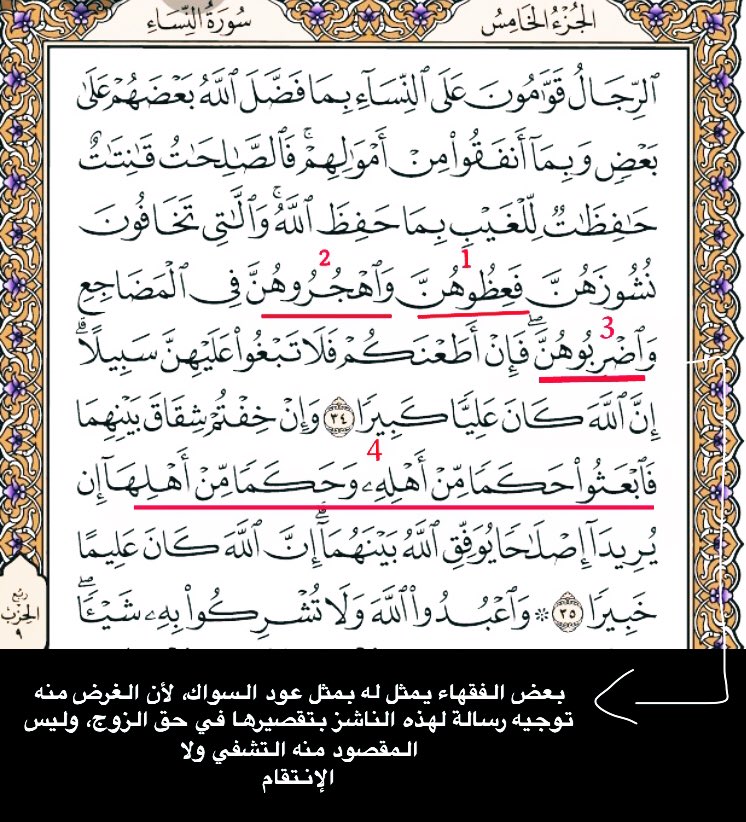 الجزء الخامس
سورة النساء
ٱلرِّجَالُ قَوَّٰمُونَ عَلَى ٱلنِّسَآءِ بِمَا فَضَّلَ ٱللَّهُ بَعْضَهُمْ عَلَىٰ
بَعْضٍ وَبِمَآ أَنفَقُوا۟ مِنْ أَمْوَٰلِهِمْ ۚ فَٱلصَّٰلِحَٰتُ قَٰنِتَٰتٌ
حَٰفِظَٰتٌ لِّلْغَيْبِ بِمَا حَفِظَ ٱللَّهُ ۚ وَٱلَّٰتِى تَخَافُونَ
2 1
نُشُوزَهُنَّ فَعِظُوهُنَّ وَٱهْجُرُوهُنَّ فِى ٱلْمَضَاجِعِ
3
وَٱضْرِبُوهُنَّ ۖ فَإِنْ أَطَعْنَكُمْ فَلَا تَبْغُوا۟ عَلَيْهِنَّ سَبِيلًا ۗ
إِنَّ ٱللَّهَ كَانَ عَلِيًّا كَبِيرًا ٣٤ وَإِنْ خِفْتُمْ شِقَاقَ بَيْنِهِمَا
4
فَٱبْعَثُوا۟ حَكَمًا مِّنْ أَهْلِهِۦ وَحَكَمًا مِّنْ أَهْلِهَآ إِن
يُرِيدَآ إِصْلَٰحًا يُوَفِّقِ ٱللَّهُ بَيْنَهُمَآ ۗ إِنَّ ٱللَّهَ كَانَ عَلِيمًا
خَبِيرًا ٣٥ ۞ وَٱعْبُدُوا۟ ٱللَّهَ وَلَا تُشْرِكُوا۟ بِهِۦ شَيْـًٔا ۖ
ربع
الحزب
٩
بعض الفقهاء يمثل له بمثل عود السواك، لأن الغرض منه
توجيه رسالة لهذه الناشز بتقصيرها في حق الزوج، وليس
المقصود منه التشفي ولا
الإنتقام